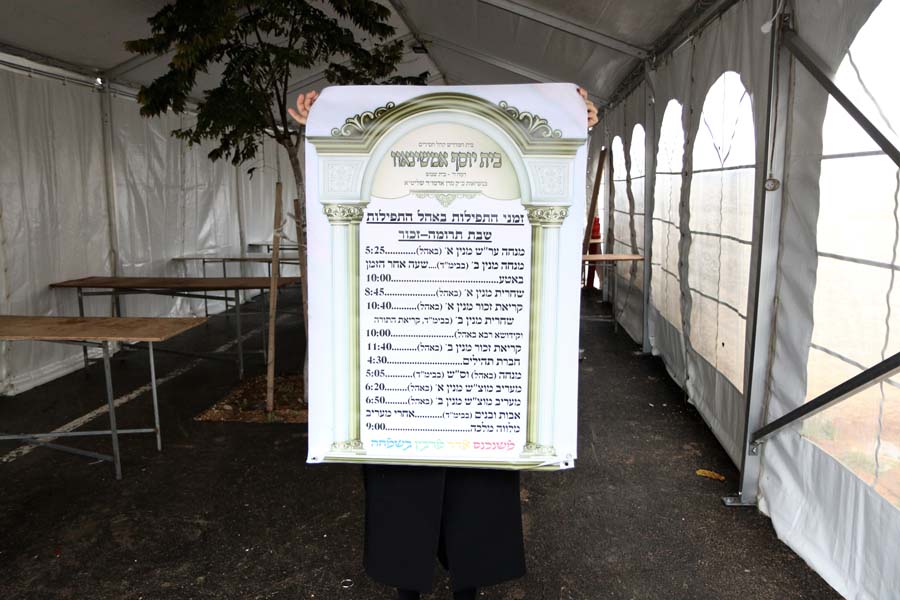 בית המדרש קהל חסידים
בית יוסף אמשינאוו
רמה ד' - בית שמש
בנשיאות כ"ק מרן אדמו"ר שליט"א
זמני התפילות באהל התפילות
שבת תרומה-זכור
מנחה ער"ש מנין א' (באהל)............5:25
מנחה מנין ב' (בבימ"ד)....שעה אחר הזמן
באטע........................................10:00
שחרית מנין א' (באהל)..................8:45
קריאת זכור מנין א' (באהל)..........10:40
שחרית מנין ב' (בבימ"ד, קריאת התורה
וקידושא רבא באהל)......................10:00
קריאת זכור מנין ב' (באהל)..........11:40
חברת תהילים...............................4:30
מנחה (באהל) וס"ש (בבימ"ד)..........5:05
מעריב מוצ"ש מנין א' (באהל)........6:20
מעריב מוצ"ש מנין ב' (באהל)........6:50
אבות ובנים (בבימ"ד)..........אחרי מעריב
מלווה מלכה................................9:00
משנכנס אדר מרבין בשמחה